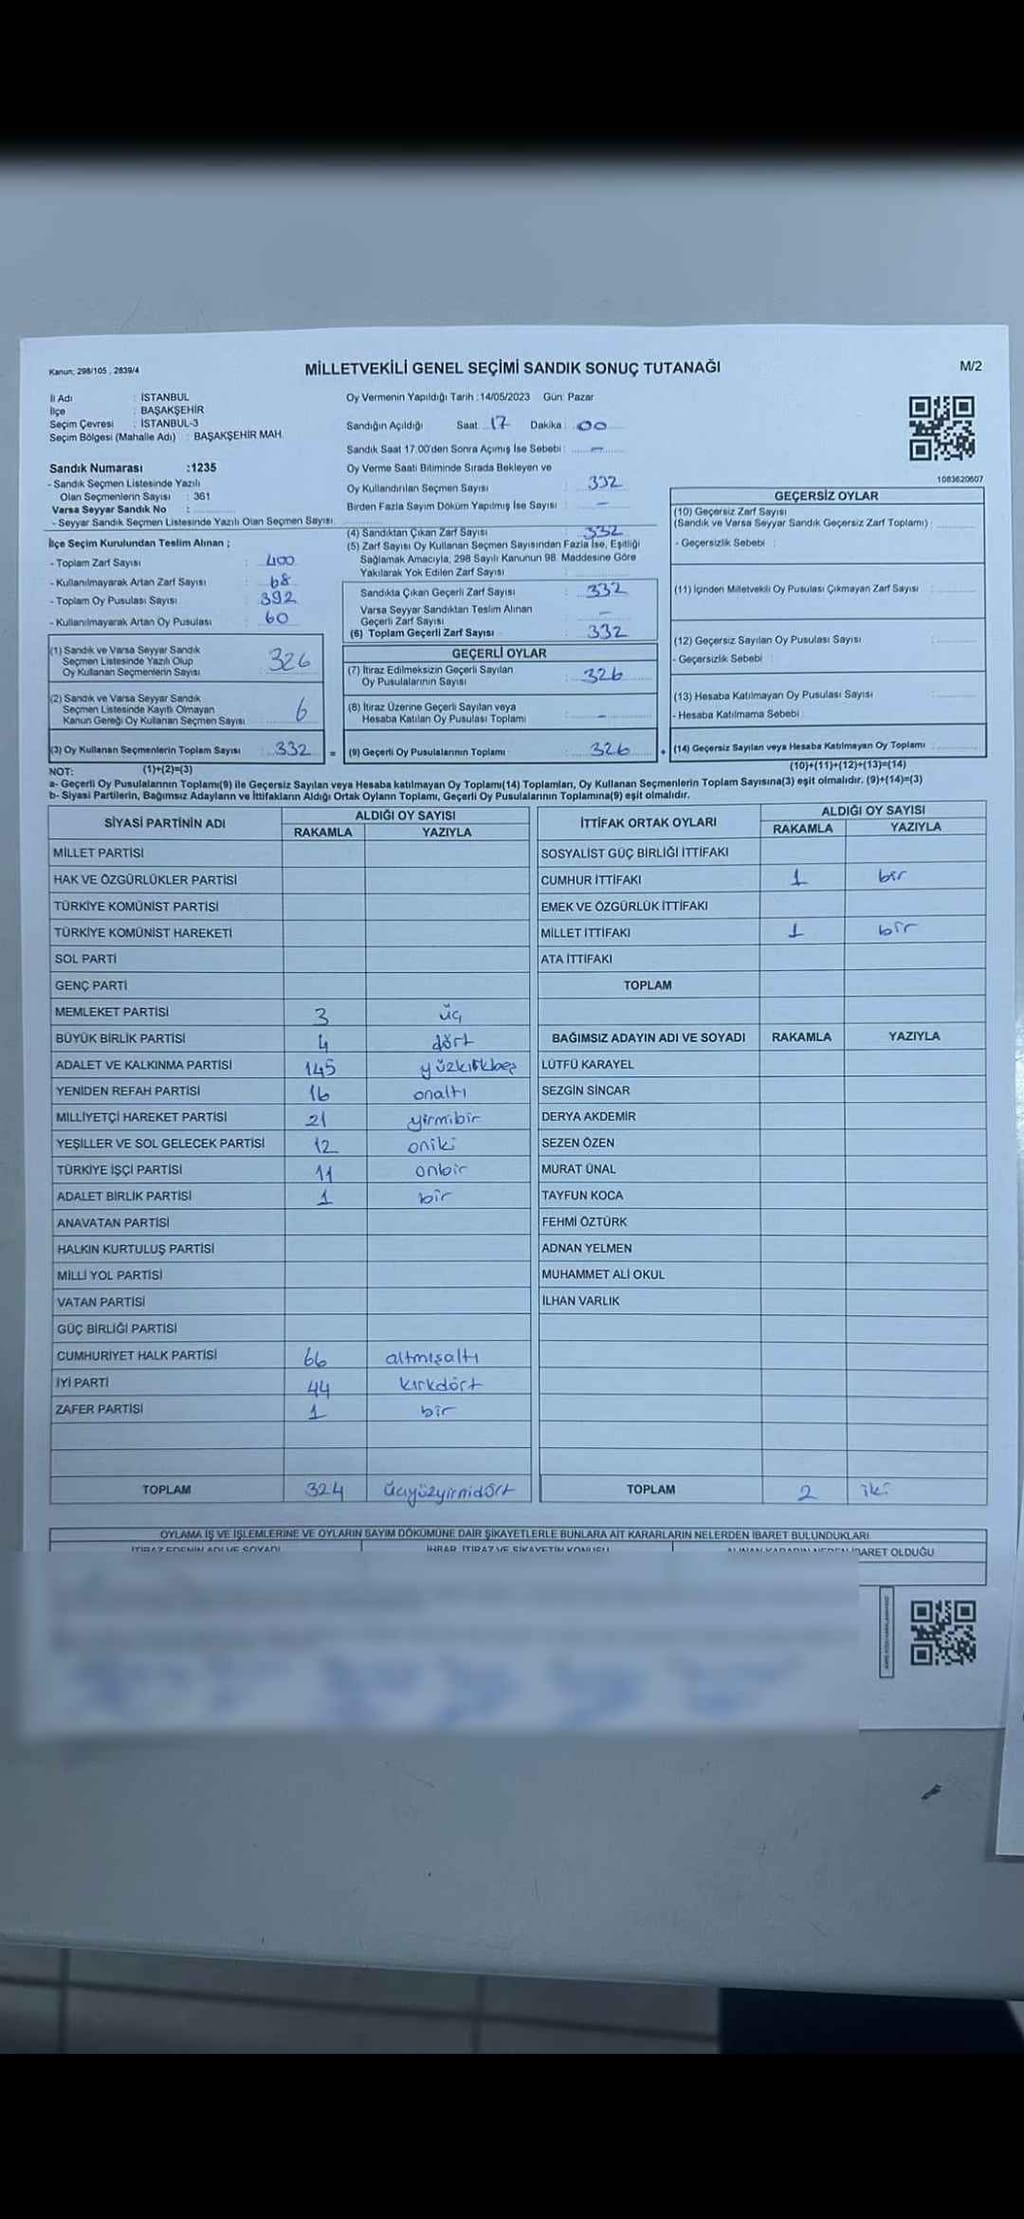 Kanun: 298/105 , 2839/4
MİLLETVEKİLİ GENEL SEÇİMİ SANDIK SONUÇ TUTANAĞI
M/2
İl Adı : İSTANBUL
İlçe : BAŞAKŞEHİR
Seçim Çevresi : İSTANBUL-3
Seçim Bölgesi (Mahalle Adı) : BAŞAKŞEHİR MAH.
Sandık Numarası :1235
- Sandık Seçmen Listesinde Yazılı
Olan Seçmenlerin Sayısı : 361
Varsa Seyyar Sandık No :
- Seyyar Sandık Seçmen Listesinde Yazılı Olan Seçmen Sayısı
İlçe Seçim Kurulundan Teslim Alınan ;
- Toplam Zarf Sayısı : 400
- Kullanılmayarak Artan Zarf Sayısı : 68
- Toplam Oy Pusulası Sayısı : 392
- Kullanılmayarak Artan Oy Pusulası : 60
(1) Sandık ve Varsa Seyyar Sandık
Seçmen Listesinde Yazılı Olup
Oy Kullanan Seçmenlerin Sayısı 326
(2) Sandık ve Varsa Seyyar Sandık
Seçmen Listesinde Kayıtlı Olmayan
Kanun Gereği Oy Kullanan Seçmen Sayısı 6
(3) Oy Kullanan Seçmenlerin Toplam Sayısı : 332 =
(1)+(2)=(3)
Oy Vermenin Yapıldığı Tarih :14/05/2023 Gün: Pazar
Sandığın Açıldığı Saat 17 Dakika : 00
Sandık Saat 17:00'den Sonra Açımış İse Sebebi : —
Oy Verme Saati Bitiminde Sırada Bekleyen ve
Oy Kullandırılan Seçmen Sayısı : 332
Birden Fazla Sayım Döküm Yapılmış İse Sayısı : —
(4) Sandıktan Çıkan Zarf Sayısı : 332
(5) Zarf Sayısı Oy Kullanan Seçmen Sayısından Fazla İse, Eşitliği
Sağlamak Amacıyla, 298 Sayılı Kanunun 98. Maddesine Göre
Yakılarak Yok Edilen Zarf Sayısı
Sandıkta Çıkan Geçerli Zarf Sayısı : 332
Varsa Seyyar Sandıktan Teslim Alınan
Geçerli Zarf Sayısı : —
(6) Toplam Geçerli Zarf Sayısı : 332
GEÇERLİ OYLAR
(7) İtiraz Edilmeksizin Geçerli Sayılan
Oy Pusulalarının Sayısı : 326
(8) İtiraz Üzerine Geçerli Sayılan veya
Hesaba Katılan Oy Pusulası Toplamı : —
(9) Geçerli Oy Pusulalarının Toplamı : 326 +
1083620607
GEÇERSİZ OYLAR
(10) Geçersiz Zarf Sayısı
(Sandık ve Varsa Seyyar Sandık Geçersiz Zarf Toplamı) :
- Geçersizlik Sebebi :
(11) İçinden Milletvekili Oy Pusulası Çıkmayan Zarf Sayısı :
(12) Geçersiz Sayılan Oy Pusulası Sayısı :
- Geçersizlik Sebebi :
(13) Hesaba Katılmayan Oy Pusulası Sayısı :
- Hesaba Katılmama Sebebi :
(14) Geçersiz Sayılan veya Hesaba Katılmayan Oy Toplamı
(10)+(11)+(12)+(13)=(14)
NOT:
a- Geçerli Oy Pusulalarının Toplamı(9) ile Geçersiz Sayılan veya Hesaba katılmayan Oy Toplamı(14) Toplamları, Oy Kullanan Seçmenlerin Toplam Sayısına(3) eşit olmalıdır. (9)+(14)=(3)
b- Siyasi Partilerin, Bağımsız Adayların ve İttifakların Aldığı Ortak Oyların Toplamı, Geçerli Oy Pusulalarının Toplamına(9) eşit olmalıdır.
SİYASİ PARTİNİN ADI ALDIĞI OY SAYISI
RAKAMLA YAZIYLA
MİLLET PARTİSİ
HAK VE ÖZGÜRLÜKLER PARTİSİ
TÜRKİYE KOMÜNİST PARTİSİ
TÜRKİYE KOMÜNİST HAREKETİ
SOL PARTİ
GENÇ PARTİ
MEMLEKET PARTİSİ 3 üç
BÜYÜK BİRLİK PARTİSİ 4 dört
ADALET VE KALKINMA PARTİSİ 145 yüzkırkbeş
YENİDEN REFAH PARTİSİ 16 onaltı
MİLLİYETÇİ HAREKET PARTİSİ 21 yirmibir
YEŞİLLER VE SOL GELECEK PARTİSİ 12 oniki
TÜRKİYE İŞÇİ PARTİSİ 11 onbir
ADALET BİRLİK PARTİSİ 1 bir
ANAVATAN PARTİSİ
HALKIN KURTULUŞ PARTİSİ
MİLLİ YOL PARTİSİ
VATAN PARTİSİ
GÜÇ BİRLİĞİ PARTİSİ
CUMHURİYET HALK PARTİSİ 66 altmışaltı
İYİ PARTİ 44 kırkdört
ZAFER PARTİSİ 1 bir
TOPLAM 324 üçyüzyirmidört
İTTİFAK ORTAK OYLARI ALDIĞI OY SAYISI
RAKAMLA YAZIYLA
SOSYALİST GÜÇ BİRLİĞİ İTTİFAKI
CUMHUR İTTİFAKI 1 bir
EMEK VE ÖZGÜRLÜK İTTİFAKI
MİLLET İTTİFAKI 1 bir
ATA İTTİFAKI
TOPLAM
BAĞIMSIZ ADAYIN ADI VE SOYADI RAKAMLA YAZIYLA
LÜTFÜ KARAYEL
SEZGİN SİNCAR
DERYA AKDEMİR
SEZEN ÖZEN
MURAT ÜNAL
TAYFUN KOCA
FEHMİ ÖZTÜRK
ADNAN YELMEN
MUHAMMET ALİ OKUL
İLHAN VARLIK
TOPLAM 2 iki
OYLAMA İŞ VE İŞLEMLERİNE VE OYLARIN SAYIM DÖKÜMÜNE DAİR ŞİKAYETLERLE BUNLARA AİT KARARLARIN NELERDEN İBARET BULUNDUKLARI
İTİRAZ EDENİN ADI VE SOYADI İHBAR, İTİRAZ VE ŞİKAYETİN KONUSU ALINAN KARARIN NEDEN İBARET OLDUĞU